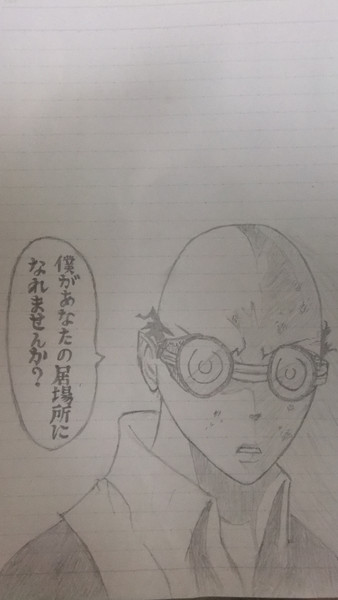 僕があなたの居場所に
なれませんか?